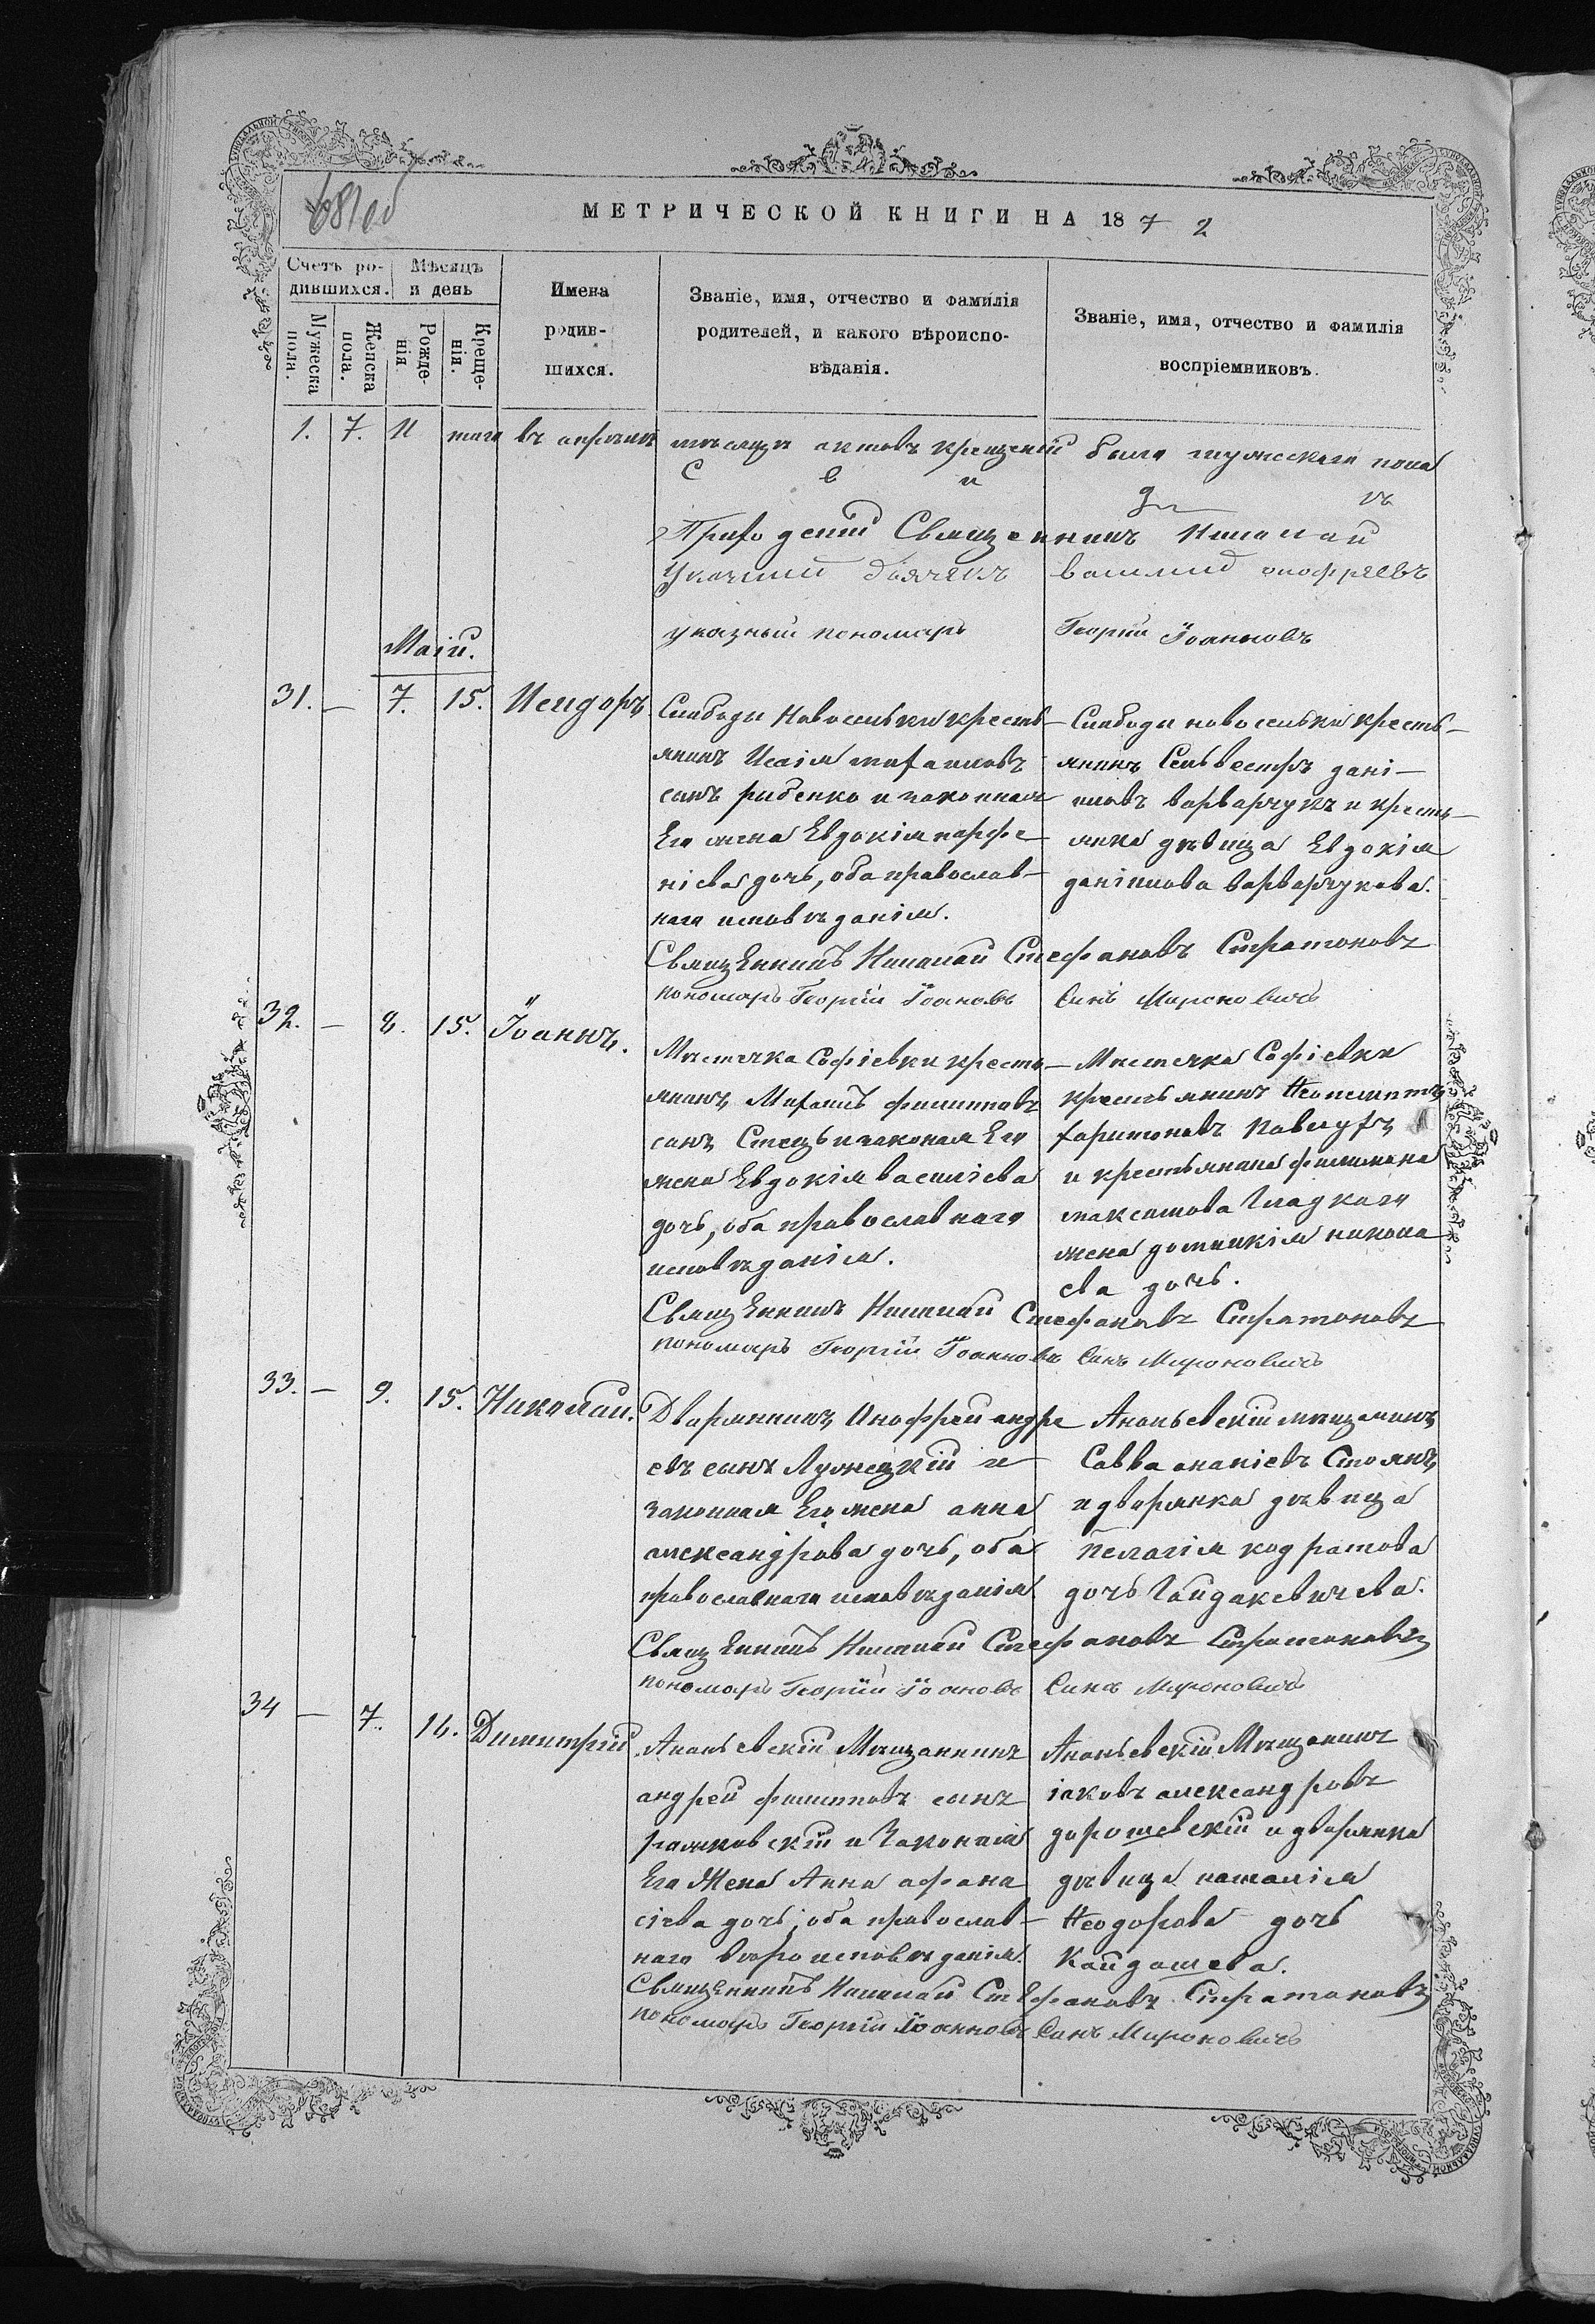 681об
МЕТРИЧЕСКОЙ КНИГИ НА 1872
Счетъ ро-
дившихся.
Мѣсяцъ
и день
Имена
родив-
шихся.
Званіе, имя, отчество и фамилія
родителей, и какого вѣроиспо-
вѣданія.
Званіе, имя, отчество и фамилія
воспріемниковъ.
Мужеска
пола.
Женска
пола.
Рожде-
нія
Креще-
нія.
1. 7. И того въ апрѣлѣ мѣсяцѣ актовъ крещеній было мужескаго пола
Священникъ Николай
Указный Дьячекъ василид онофреевъ
указный пономарь Георгій Іоанновъ
Маій.
31. — 7. 15. Исидоръ.
Слободы Новоселівки кресть-
янинъ Исаія михаиловъ
сынъ рибенко и законная
Его жена Евдокія парфе
ніева дочь, оба православ-
наго исповѣданія.
Слободы новоселівки кресть-
янинъ Сельвестръ дані-
иловъ варварчукъ и кресть-
янка дѣвица Евдокія
даніилова варварчукова.
Священникъ Николай Стефановъ Стратоновъ
пономарь Георгій Іоановъ Синъ Мироновичъ
32. — 8. 15. Іоаннъ.
Мѣстечка Софіевки кресть-
янинъ, Михаилъ филиповъ
сынъ Стець и законая Его
жена Евдокія василіева
дочь, оба православнаго
исповѣданія.
Мѣстечка Софіевки
крестьянинъ
харитоновъ
и крестьянина филимона
максимова Гладкаго
жена домникія никола
ева дочь.
Священникъ Николай Стефановъ Стратоновъ
пономарь Георгій Іоанновъ Синъ Мироновичъ
33. — 9. 15. Николай.
Дворянинъ, Онофрей андре
евъ сынъ Лужецкій и
законная Его жена анна
александрова дочь, оба
православнаго исповѣданія.
Ананьевскій мѣщанинъ,
Савва ананіевъ Стоянъ,
и дворянка дѣвица
Пелагія кодратова
дочь Гайдакевичева.
Священникъ Николай Стефановъ Стратоновъ
пономарь Георгій Іоановъ Синъ Мироновичъ
34 — 7. 14. Димитрій
Ананьевскій Мѣщанинъ
андрей филиповъ сынъ
и Законная
Его Жена Анна афана
сіева дочь; оба православ-
наго вѣроисповѣданія.
Ананьевскій Мѣщанинъ
іаковъ александровъ
дорошевскій и дворянка
дѣвица наталія
Ѳеодорова дочь
Кайдашева.
Священникъ Николай Стефановъ Стратоновъ
пономарь Георгій Іоанновъ Синъ Мироновичъ